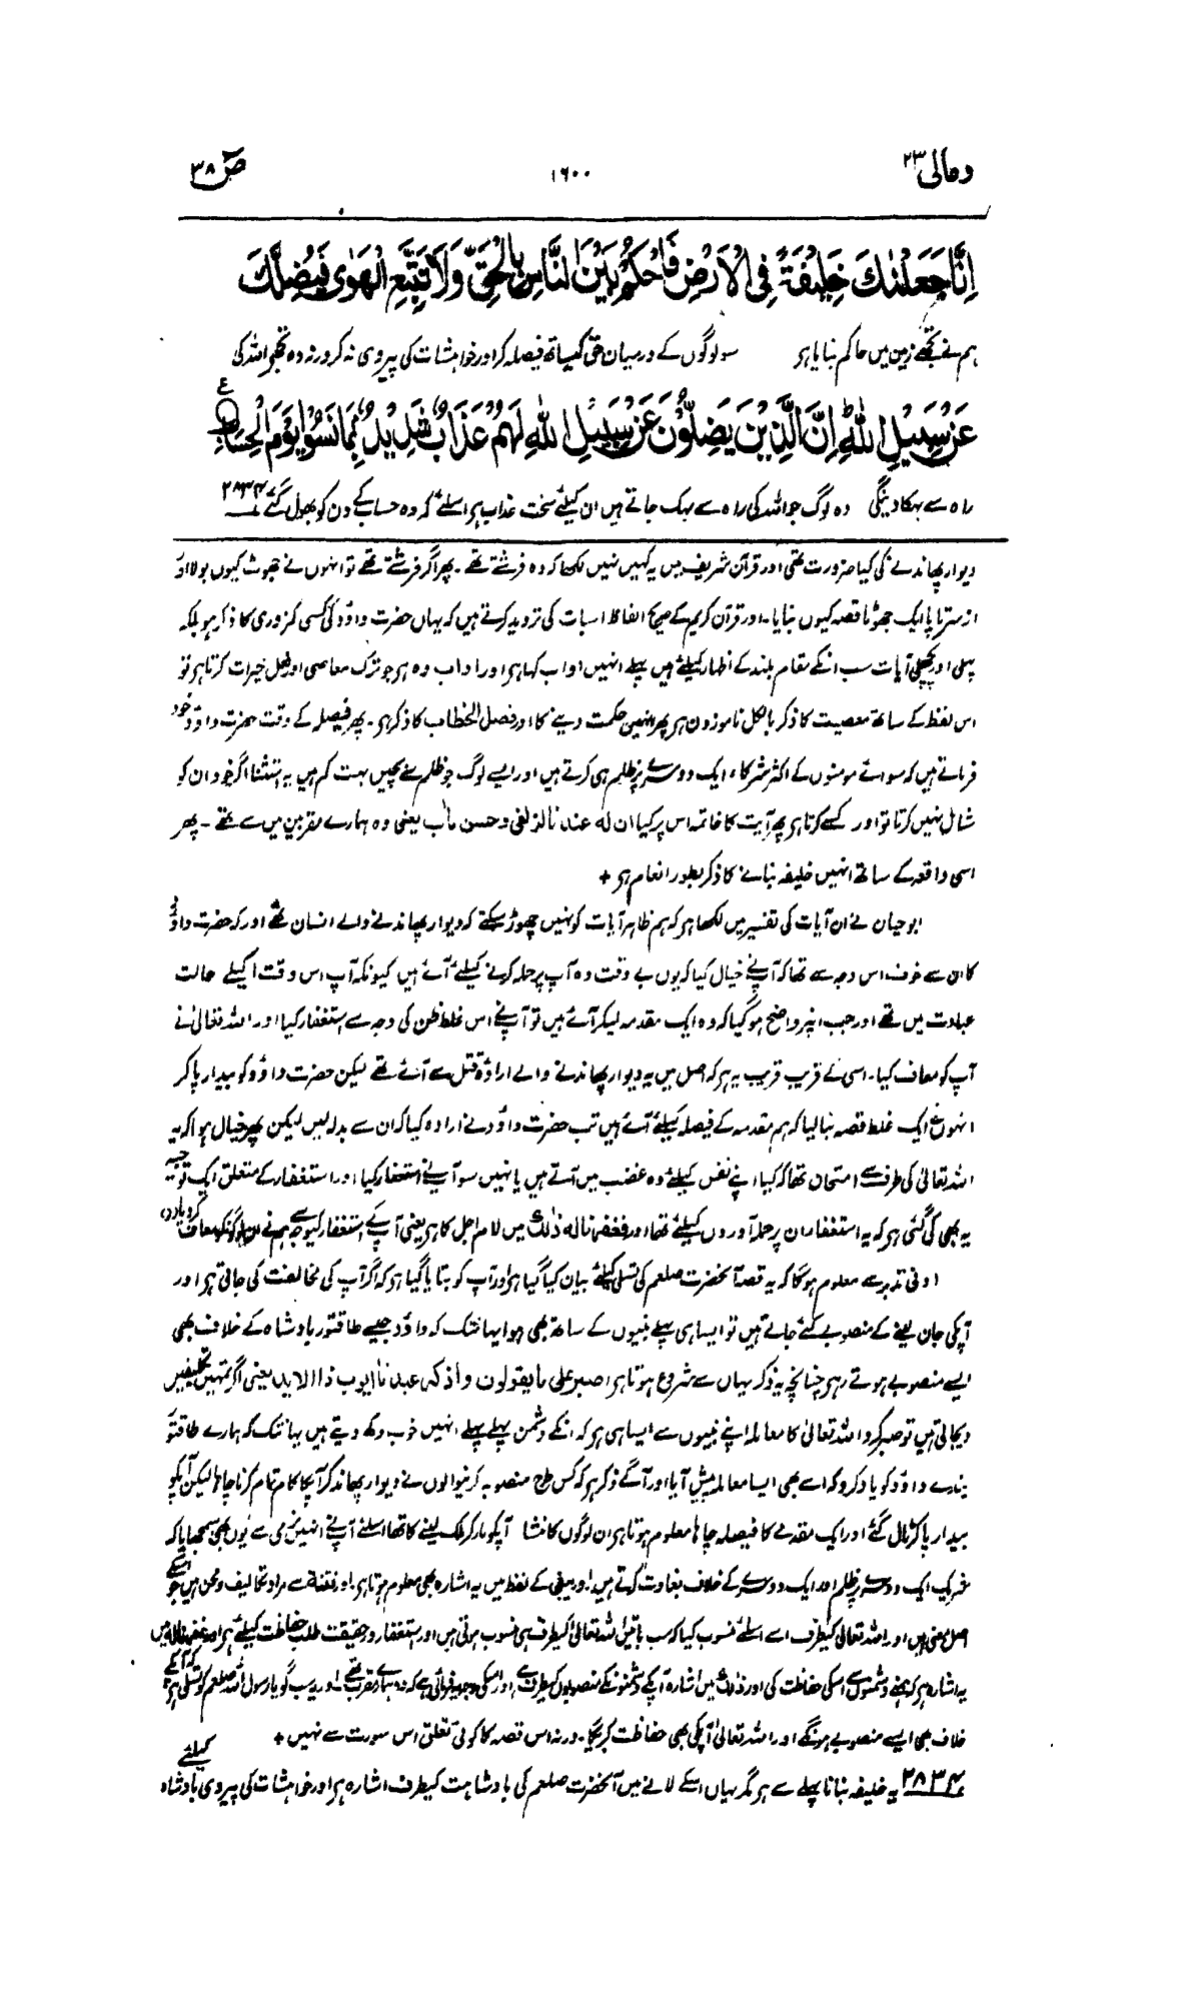 ومالی ۲۳
۱۶۰۰
ص ۳۸
اِنَّا جَعَلْنٰكَ خَلِيْفَةً فِى الْاَرْضِ فَاحْكُمْ بَيْنَ النَّاسِ بِالْحَقِّ وَلَا تَتَّبِعِ الْهَوٰى فَيُضِلَّكَ
ہم نے تجھے زمین میں حاکم بنایا ہر سو لوگوں کے درمیان حق کیساتھ فیصلہ کر اور خواہشات کی پیروی نہ کر ورنہ وہ تجھے اللہ کی
عَنْ سَبِيْلِ اللّٰهِ اِنَّ الَّذِيْنَ يَضِلُّوْنَ عَنْ سَبِيْلِ اللّٰهِ لَهُمْ عَذَابٌ شَدِيْدٌۢ بِمَا نَسُوْا يَوْمَ الْحِسَابِ ع
راہ سے بہکا دینگی وہ لوگ جو اللہ کی راہ سے بہک جاتے ہیں ان کیلئے سخت عذاب ہر اسلئے کہ وہ حساب کے دن کو بھول گئے ۲۸۳۴
دیوار پھاندنے کی کیا ضرورت تھی اور قرآن شریف میں یہ کہیں نہیں لکھا کہ وہ فرشتے تھے ۔ پھر اگر فرشتے تھے تو انہوں نے جھوٹ کیوں بولا اور
از سرتاپا ایک جھوٹا قصہ کیوں بنایا ۔ اور قرآن کریم کے صریح الفاظ اسبات کی تردید کرتے ہیں کہ یہاں حضرت داؤد کی کسی کمزوری کا ذکر ہو بلکہ
پہلی اور پچھلی آیات سب انکے مقام بلند کے اظہار کیلئے ہیں پہلے انہیں اواب کہا ہر اور اداب وہ ہر جو ترک معاصی اور فعل خیرات کرتا ہر تو
اس لفظ کے ساتھ معصیت کا ذکر بالکل ناموزون ہر پھر انہیں حکمت دینے کا اور فصل الخطاب کا ذکر ہر ۔ پھر فیصلہ کے وقت حضرت داؤد خود
فرماتے ہیں کہ سوائے مومنوں کے اکثر شرکاء ایک دوسرے پر ظلم ہی کرتے ہیں اور ایسے لوگ جو ظلم سے بچیں بہت کم ہیں یہ استثنا اگر خود ان کو
شامل نہیں کرتا تو اور کسے کرتا ہر پھر آیت کا خاتمہ اس پر کیا ان له عندنا لزلفى وحسن ماٰب یعنی وہ ہمارے مقربین میں سے تھے ۔ پھر
اسی واقعہ کے ساتھ انہیں خلیفہ بنانے کا ذکر بطور انعام ہر +
ابو حیان نے ان آیات کی تفسیر میں لکھا ہر کہ ہم ظاہر آیات کو نہیں چھوڑ سکتے کہ دیوار پھاندنے والے انسان تھے اور کہ حضرت داؤد
کا ان سے خوف اس وجہ سے تھا کہ آپنے خیال کیا کہ یوں بے وقت وہ آپ پر حملہ کرنے کیلئے آئے ہیں کیونکہ آپ اس وقت اکیلے حالت
عبادت میں تھے اور جب انپر واضح ہو گیا کہ وہ ایک مقدمہ لیکر آئے ہیں تو آپنے اس غلط ظن کی وجہ سے استغفار کیا اور اللہ تعالیٰ نے
آپ کو معاف کیا ۔ اسی کے قریب قریب یہ ہر کہ اصل میں یہ دیوار پھاندنے والے ارادۂ قتل سے آئے تھے لیکن حضرت داؤد کو بیدار پا کر
انہوں نے ایک غلط قصہ بنا لیا کہ ہم مقدمہ کے فیصلہ کیلئے آئے ہیں تب حضرت داؤد نے ارادہ کیا کہ ان سے بدلہ لیں لیکن پھر خیال ہوا کہ یہ
اللہ تعالیٰ کی طرف سے امتحان تھا کہ کیا اپنے نفس کیلئے وہ غضب میں آتے ہیں یا نہیں سو آپنے استغفار کیا اور استغفار کے متعلق ایک توجیہ
یہ بھی کی گئی ہر کہ یہ استغفار ان پر حملہ آوروں کیلئے تھا اور فغفرنا له ذٰلك میں لام اجل کا ہر یعنی آپکے استغفار کیوجہ سے ہم نے ان لوگونکو معاف کردیا (ر)
ادنی تدبر سے معلوم ہو گا کہ یہ قصہ آنحضرت صلعم کی تسلی کیلئے بیان کیا گیا ہر اور آپ کو بتایا گیا ہر کہ اگر آپ کی مخالفت کی جاتی ہر اور
آپکی جان لینے کے منصوبے کئے جاتے ہیں تو ایسا ہی پہلے نبیوں کے ساتھ بھی ہوا یہانتک کہ داؤد جیسے طاقتور بادشاہ کے خلاف بھی
ایسے منصوبے ہوتے رہر چنانچہ یہ ذکر یہاں سے شروع ہوتا ہر اصبر على ما يقولون واذكر عبدنا ايوب ذا الايد یعنی اگر تمہیں تکلیفیں
دیجاتی ہیں تو صبر کرو اللہ تعالیٰ کا معاملہ اپنے نبیوں سے ایسا ہی ہر کہ انکے دشمن پہلے پہلے انہیں خوب دکھ دیتے ہیں یہانتک کہ ہمارے طاقتور
بندے داؤد کو یاد کرو کہ اسے بھی ایسا معاملہ پیش آیا اور آگے ذکر ہر کہ کس طرح منصوبہ کرنیوالوں نے دیوار پھاند کر آپکا کام تمام کرنا چاہا لیکن آپکو
بیدار پا کر ٹال گئے اور ایک مقدمے کا فیصلہ چاہا معلوم ہوتا ہر ان لوگوں کا منشا آپکو مار کر ملک لینے کا تھا اسلئے آپنے انہیں نرمی سے یوں بھی سمجھایا کہ
شریک ایک دوسرے پر ظلم اور ایک دوسرے کے خلاف بغاوت کرتے ہیں اور یبغی کے لفظ میں یہ اشارہ بھی معلوم ہوتا ہر اور فتنة سے مراد تکالیف و محن ہیں جو اسکے
اصل معنی ہیں اور اللہ تعالیٰ کیطرف اسے اسلئے منسوب کیا کہ سب باتیں اللہ تعالیٰ کیطرف ہی منسوب ہوتی ہیں اور استغفار درحقیقت طلب حفاظت کیلئے ہر اور غفرنا له میں
یہ اشارہ ہر کہ ہمنے دشمنوں سے اسکی حفاظت کی اور ذٰلك میں اشارہ آپکے دشمنونکے منصوبوں کیطرف ہے اور اسکی وجہ یہ فرمائی ہے کہ وہ ہمارے مقرب تھے اور یہ سب گویا رسول اللہ صلعم کو تسلی ہر کہ آپکے
خلاف بھی ایسے منصوبے ہونگے اور اللہ تعالیٰ آپکی بھی حفاظت کریگا ۔ ورنہ اس قصہ کا کوئی تعلق اس سورت سے نہیں +
۲۸۳۴ یہ خلیفہ بنانا پہلے سے ہر مگر یہاں اسکے لانے میں آنحضرت صلعم کی بادشاہت کیطرف اشارہ ہر اور خواہشات کی پیروی بادشاہ کیلئے